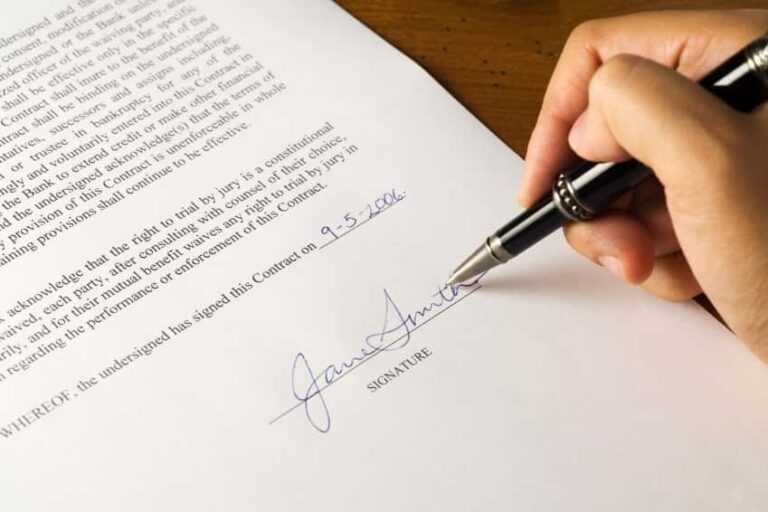 undersigned and the
consent, modification
undersigned or the Bank unless
zed officer of the waiving party, and
shall be effective only in the specific
Contract shall inure to the benefit of the
tract shall be binding on the undersigned
ntatives, successors and assigns including,
or trustee in bankruptcy for any of the
ngly and voluntarily entered into this Contract in
the Bank to extend credit or make other financial
nd the undersigned acknowledge(s) that the terms of
y provision of this Contract is unenforceable in whole
aining provisions shall continue to be effective.
acknowledge that the right to trial by jury is a constitutional
waived, each party, after consulting with counsel of their choice,
arily, and for their mutual benefit waives any right to trial by jury in
n regarding the performance or enforcement of this Contract.
WHEREOF, the undersigned has signed this Contract on 9-5-2006.
Jane Smith
SIGNATURE